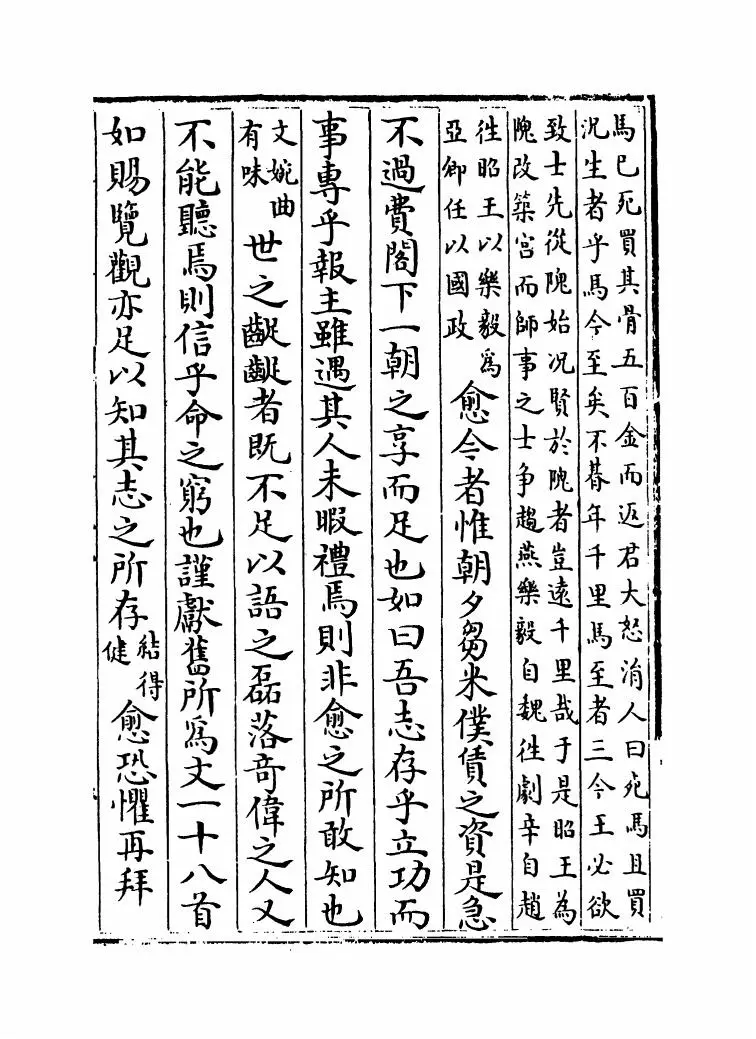 馬已死買其骨五百金而返君大怒涓人曰死馬且買
况生者乎馬今至矣不朞年千里馬至者三今王必欲
致士先從隗始况賢於隗者豈遠千里哉于是昭王為
隗改築宮而師事之士爭趨燕樂毅自魏徃劇辛自趙
徃昭王以樂毅為
亞卿任以國政
愈今者惟朝夕芻米僕賃之資是急
不過費閤下一朝之享而足也如曰吾志存乎立功而
事專乎報主雖遇其人未暇禮焉則非愈之所敢知也
文婉曲
有味
世之齪齪者既不足以語之磊落竒偉之人又
不能聽焉則信乎命之窮也謹獻舊所爲文一十八首
如賜覽觀亦足以知其志之所存
結得
健
愈恐懼再拜